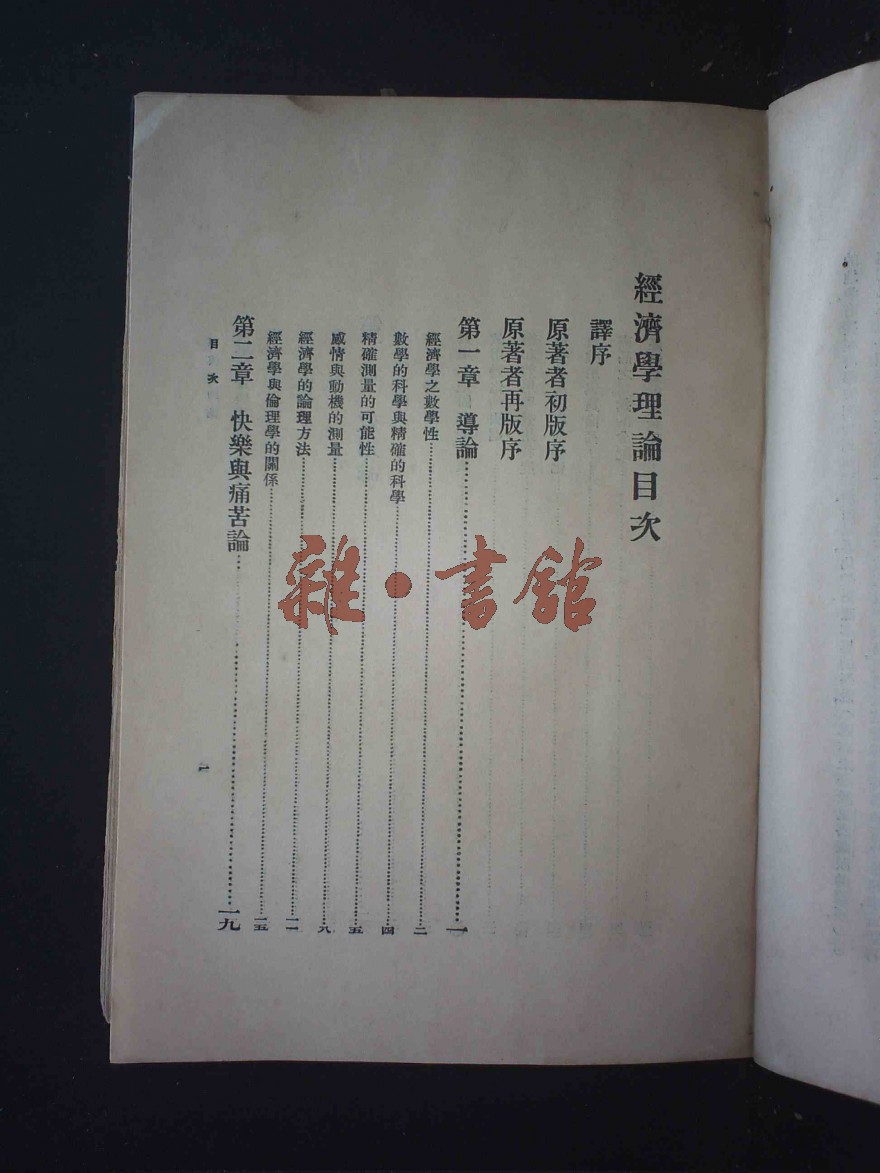 經濟學理論目次
譯序
原著者初版序
原著者再版序
第一章 導論……一
經濟學之數學性……二
數學的科學與精確的科學……四
精確測量的可能性……五
感情與動機的測量……八
經濟學的論理方法……一一
經濟學與倫理學的關係……一五
第二章 快樂與痛苦論……一九
目次
一
雜·書館